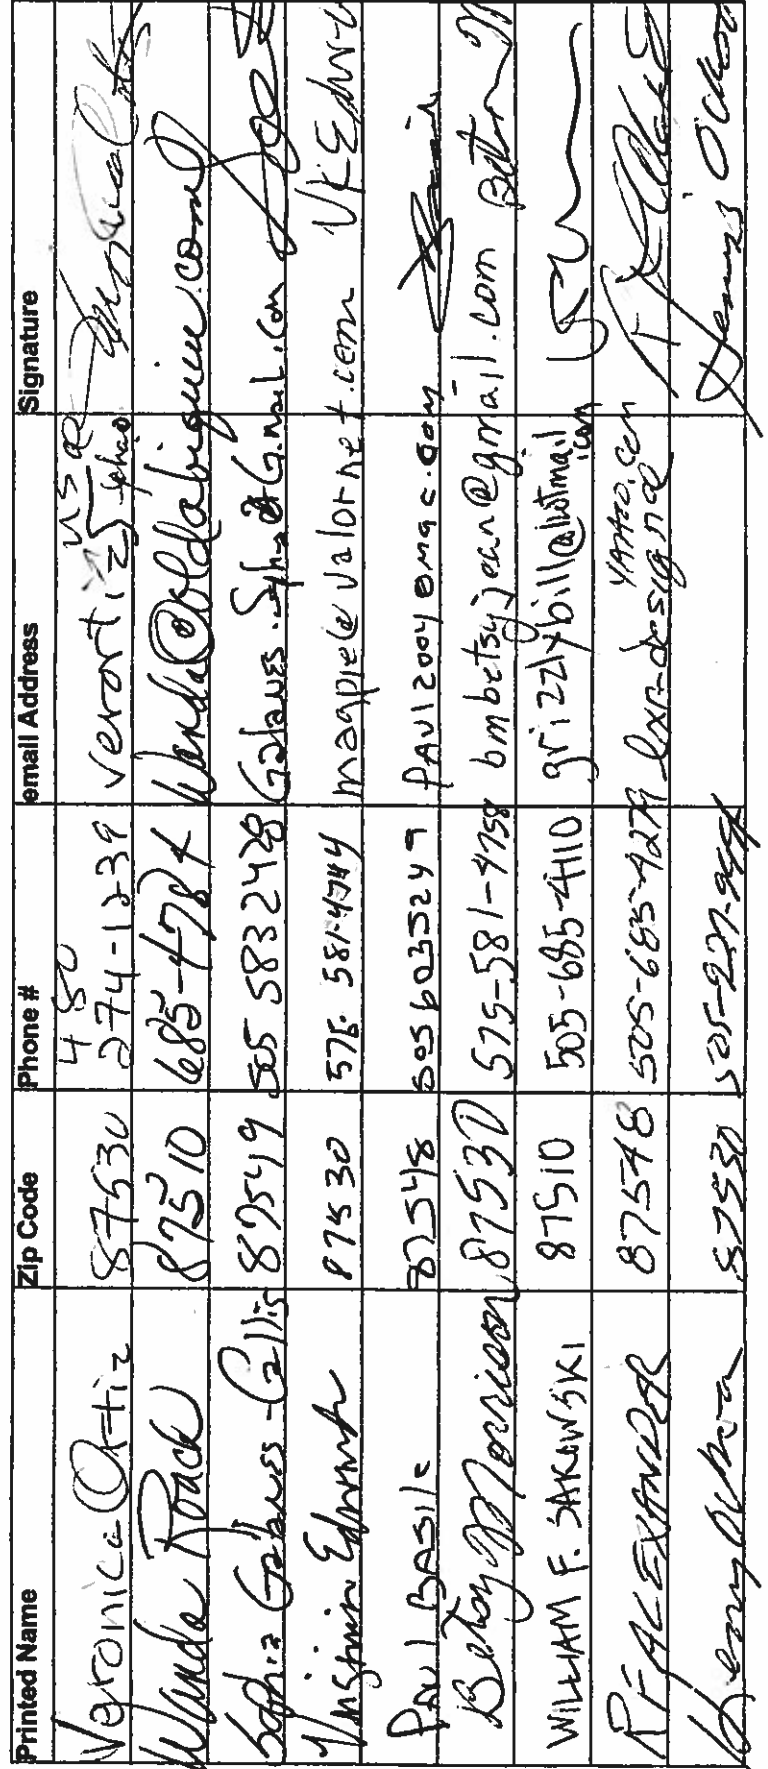 Printed Name Zip Code Phone # email Address Signature
Veronica Ortiz 87530 480 274-1239 verortiz5
Wanda Roach 87510 685-4784 Wanda@oldabiquiu.com
Sophia Galanes-Collis 87549 505 583 2428
Virginia Edwards 87530 575. 581-4744 magpie@valornet.com VKEdwa
Paul BASILE 87548 5056035249 PAUl2004@mac.com
Betsy Morrison 87530 575-581-4758 bmbetsyjean@gmail.com
WILLIAM F. SAKOWSKI 87510 505-685-4110 grizzlybill@hotmail.com
RF ALEXANDER 87548 505-685-4279 lxr-designs@ YAHOO.com
Henry Ochoa 87530 Henry Ochoa